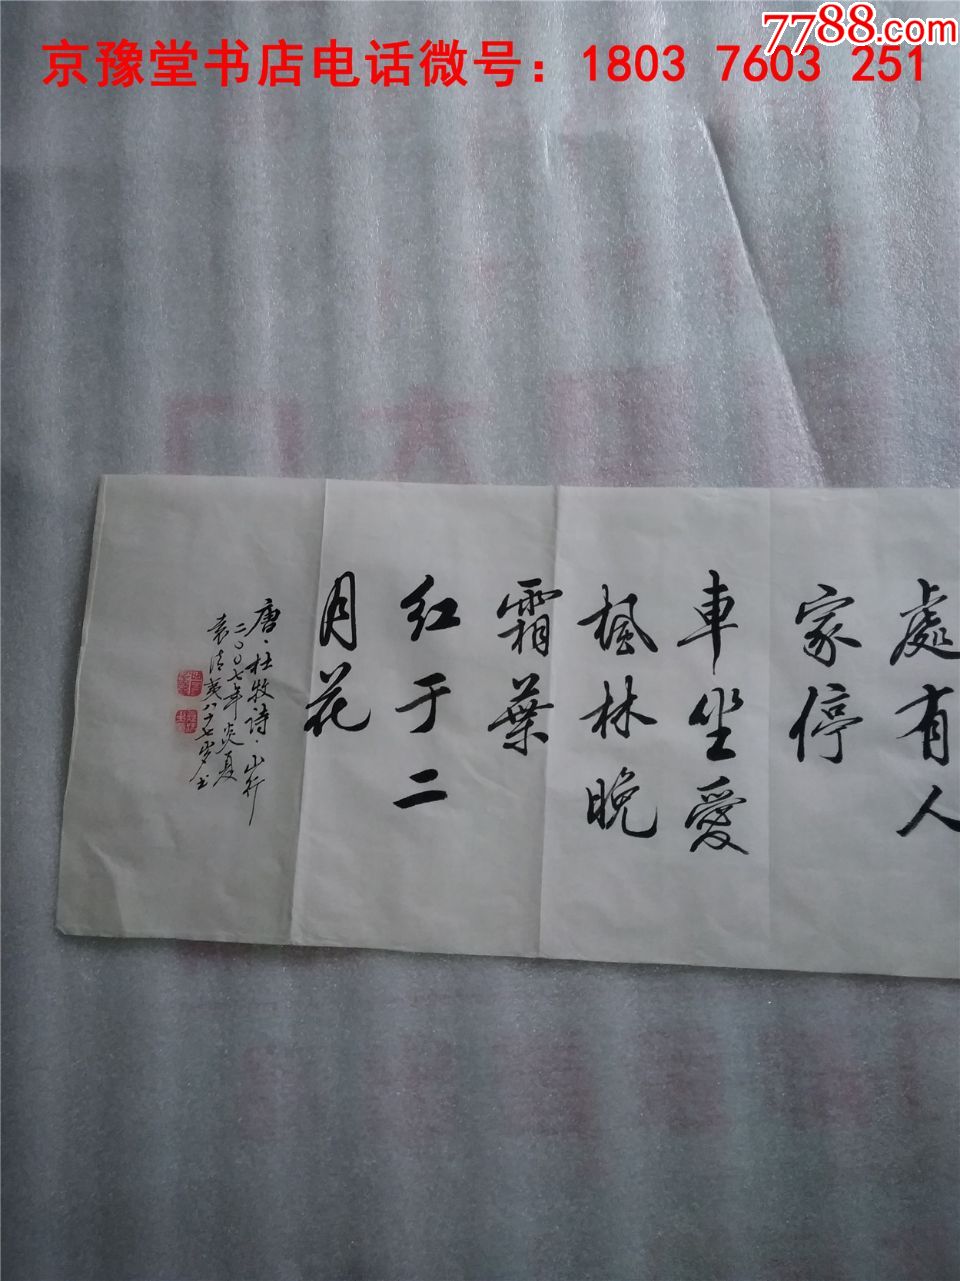 7788.com
京豫堂书店电话微号：1803 7603 251
處有人
家停
車坐愛
楓林晚
霜葉
红于二
月花
唐·杜牧诗·山行
二〇〇七年炎夏
八十七岁书